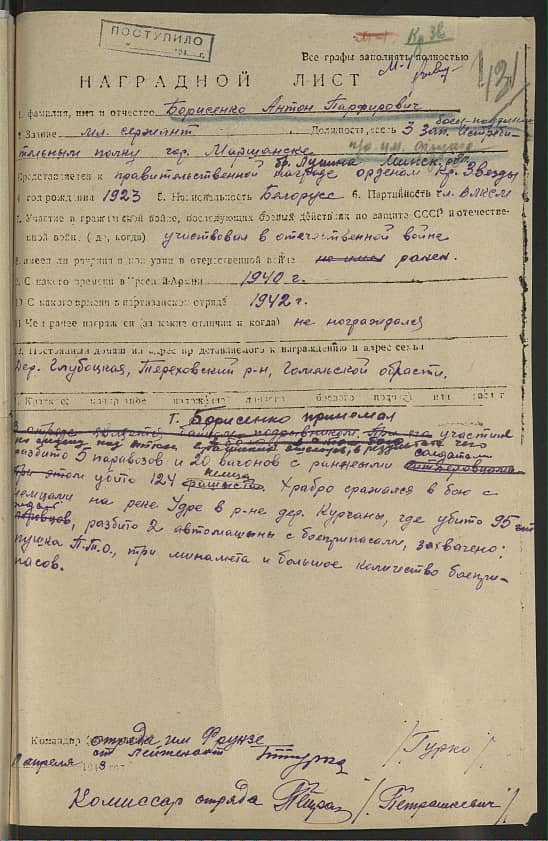 ПОСТУПИЛО
Кр Зв
Все графы заполнять полностью
НАГРАДНОЙ ЛИСТ
1. Фамилия, имя и отчество Борисенко Антон Парфирович
2. Звание мл. сержант Должность, часть 3 Зап. Истреби-
тельным полку гор. Маршанске
Представляется к правительственной награде орденом Кр. Звезды
4. год рождения 1923 5. Национальность Белорусс 6. Партийность чл. ВЛКСМ
7. Участие в гражданской войне, последующих боевых действиях по защите СССР и отечестве-
нной войне (где, когда) участвовал в отечественной войне
8. имеет ли ранения и контузии в отечественной войне не имел ранен.
9. С какого времени в Красной Армии 1940 г.
10. С какого времени в партизанском отряде 1942 г.
11. Чем ранее награжден (за какие отличия и когда) не награждался
12. Постоянный домашний адрес представляемого к награждению и адрес семьи
Дер. Глубоцкая, Тереховский р-н, Гомельской области.
Т. Борисенко принимал
участия
разбито 5 паровозов и 20 вагонов с ранеными солдатами
При этом убито 124 фашиста Храбро сражался в бою с
немцами на реке Удре в р-не дер. Курганы, где убито 95
разбито 2 автомашины с боеприпасами, захвачено:
пушка П.Т.О., три миномета и большое количество боепри-
пасов.
Командир отряда им Фрунзе
ст лейтенант /Гурко/
апреля 1943
Комиссар отряда /Петрашкевич/